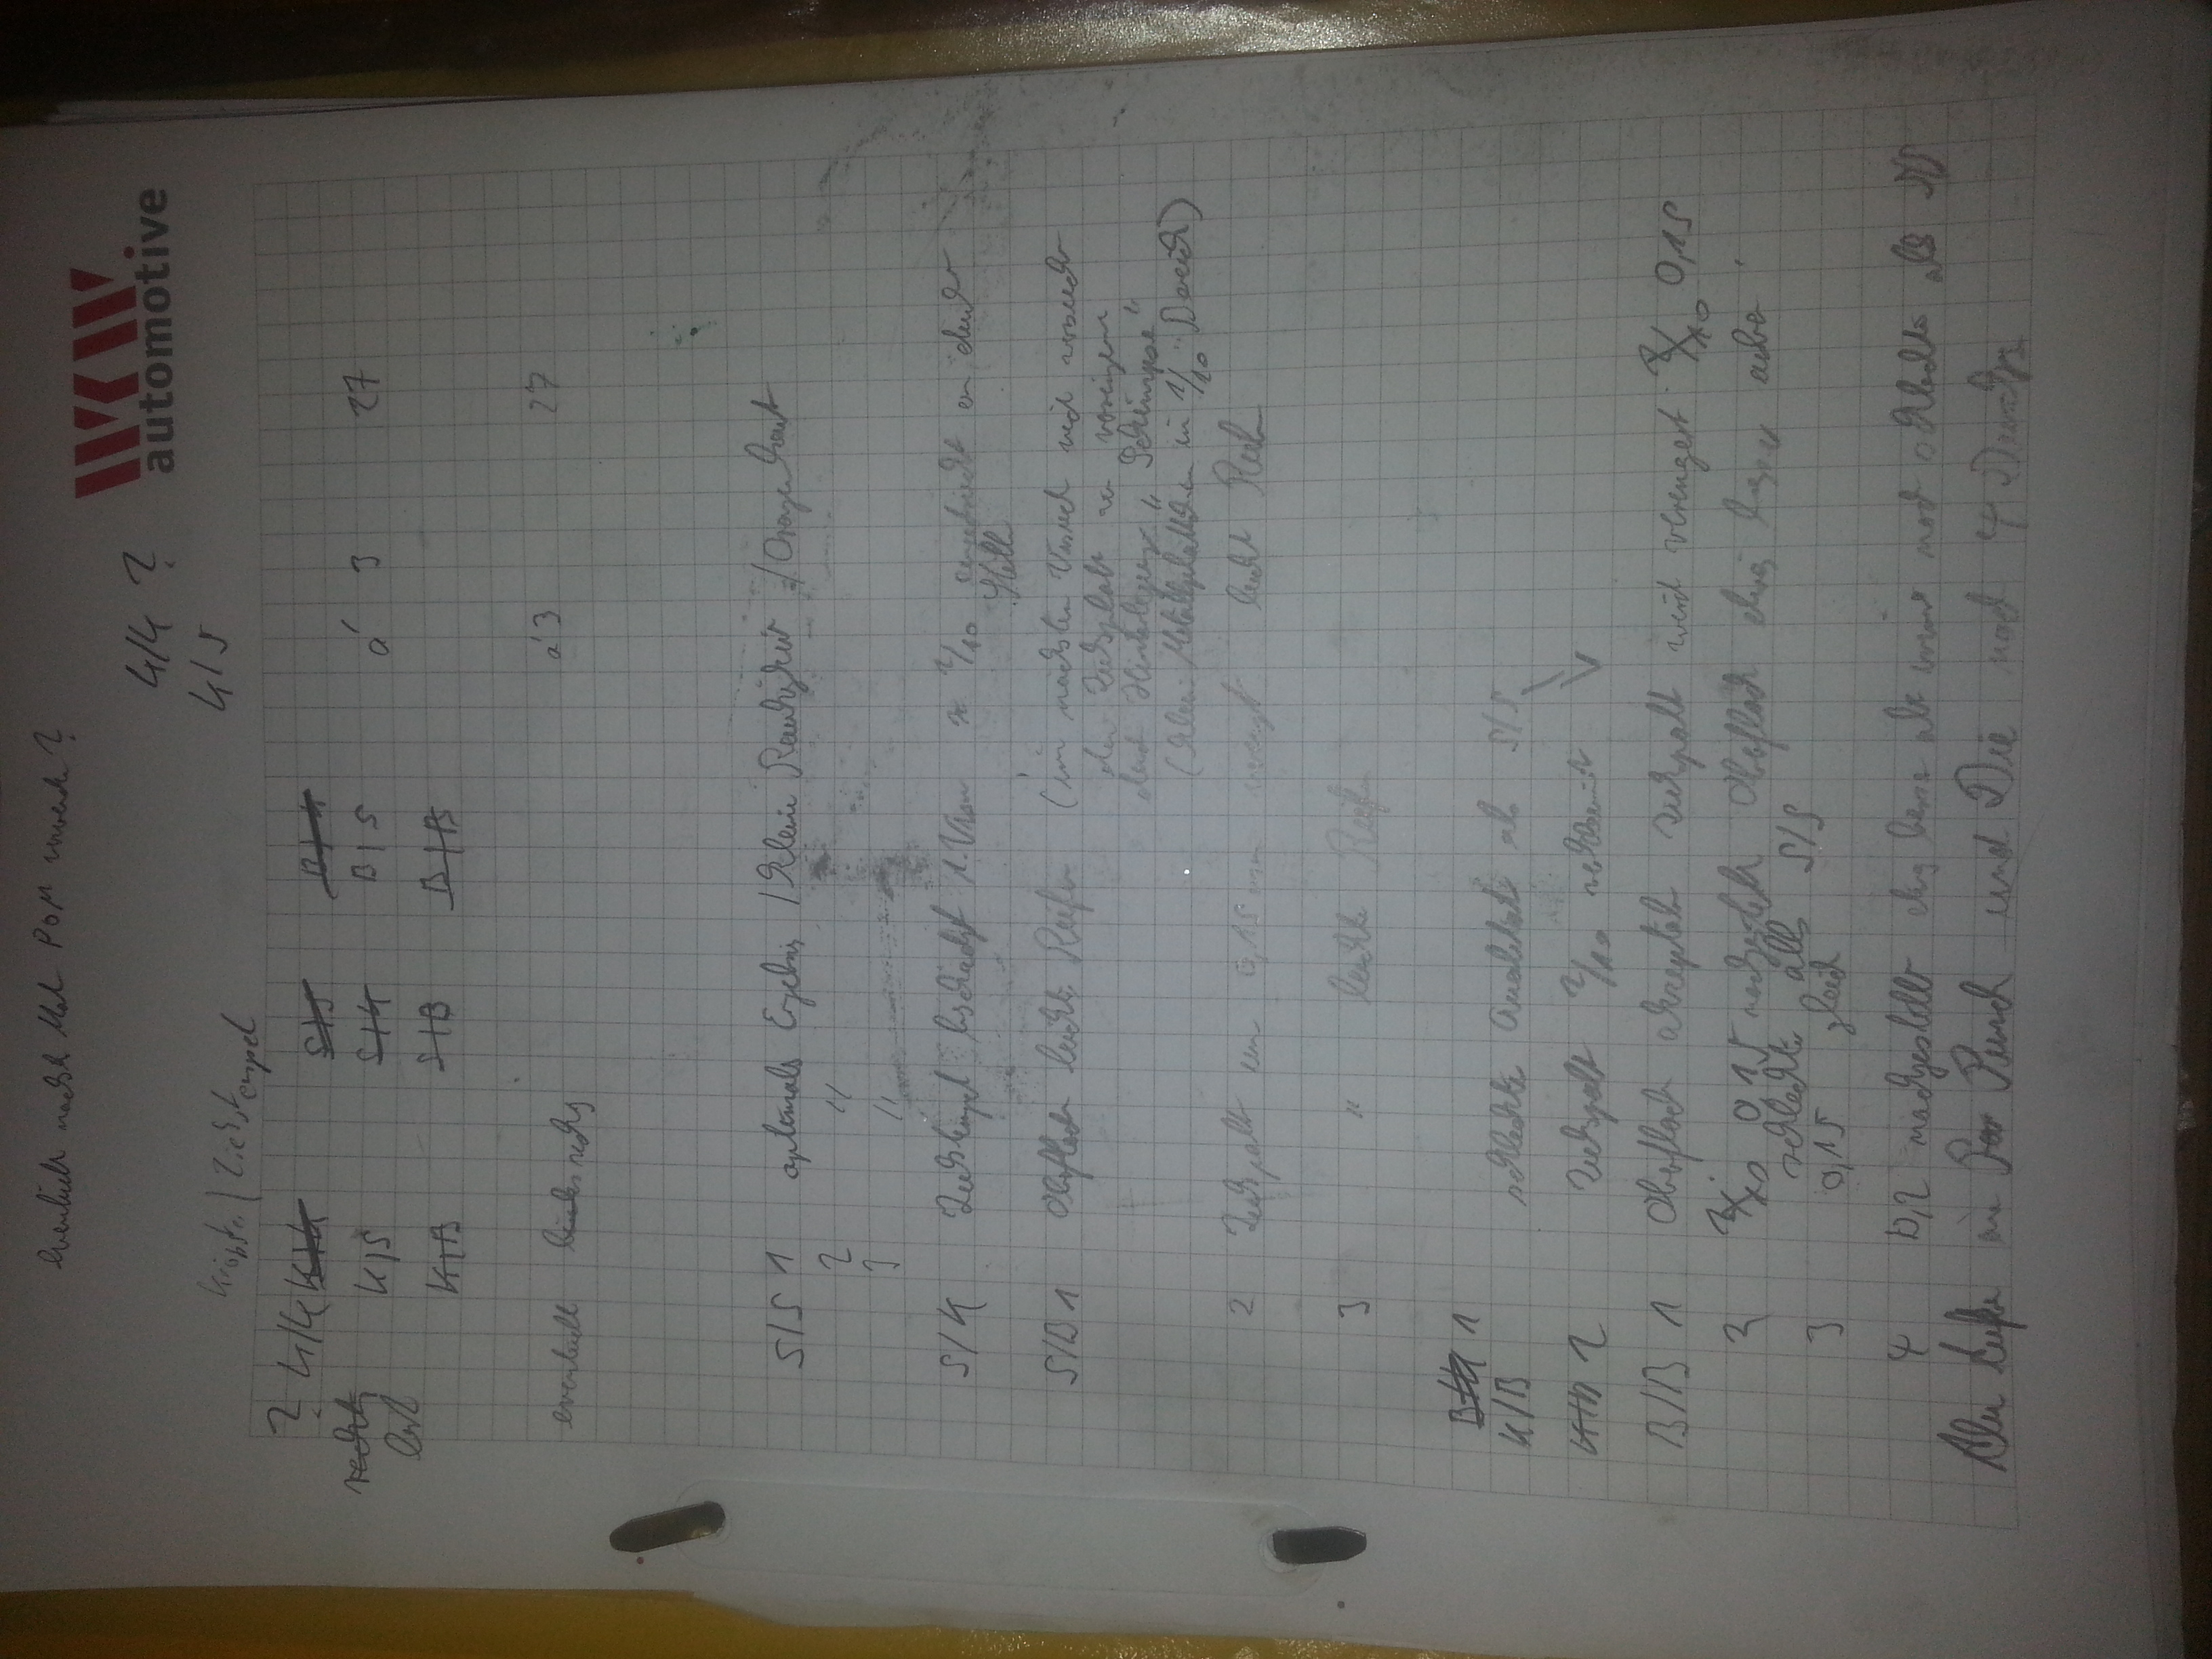 eventuell nächstes Mal POM verwenden?
WKW.
automotive
4/4 ?
4/5
/ Ziehstempel
? 4/4 K/K S/S B/K
rechts K/S S/K B/S á 3 27
K/B S/B B/B
eventuell links rechts á 3 27
S/S 1 optimales Ergebnis / kleine Rauhigkeit / Orangenhaut
2 "
3 "
S/K Ziehstempel 2/10 an
Stelle
S/B 1 Oberfläche leichte Riefen (im nächsten Versuch wird versucht
den Ziehspalt zu
durch Hinterlegung „
(kleine Metallplättchen im 1/10 Bereich)
2 Ziehspalt um 0,15 mm verengt leichte Riefen
3 " leichte Riefen
B/K 1
K/B schlechtere Qualität als S/S
K/B 2 Ziehspalt 2/10
B/B 1 Oberfläche akzeptabel Ziehspalt wird verengert 2/10 0,15
2 2/10 0,15 nachgestellt Oberfläche etwas besser aber
schlechter alls S/S
3 0,15 gleich
4 0,2 nachgestellt etwas besser aber immer noch schlechter als S/S
Punch und Die nach 4